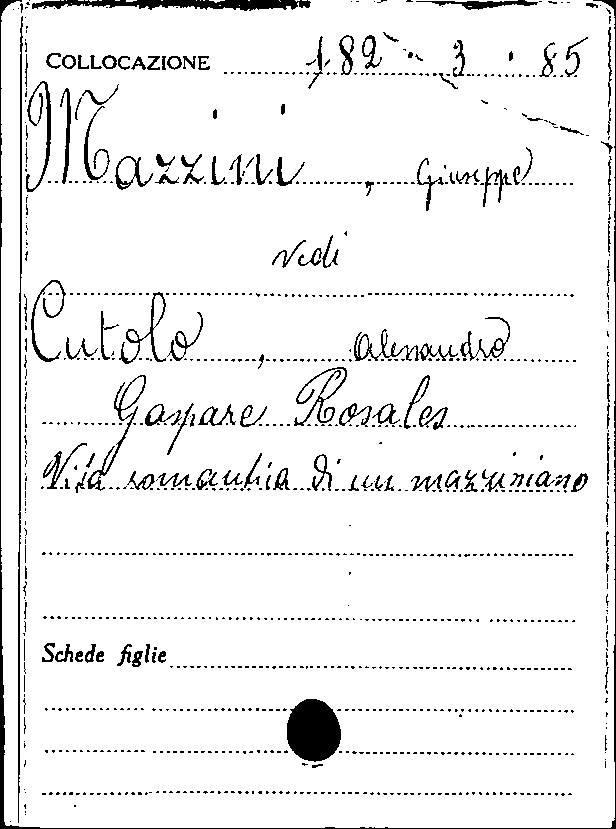 COLLOCAZIONE 182 . 3 . 85
Mazzini, Giuseppe
vedi
Cutolo, Alessandro
Gaspare Rosales
Vita romantica di un mazziniano
Schede figlie